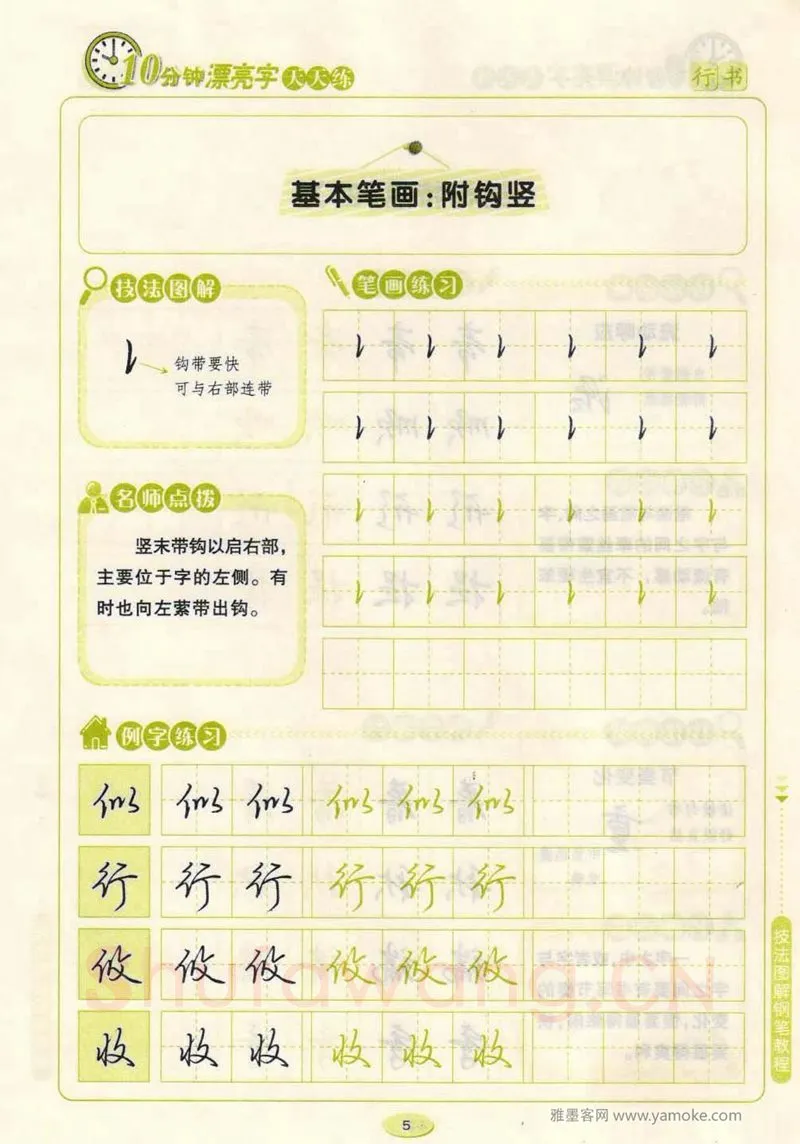 10分钟漂亮字天天练
行书
基本笔画：附钩竖
技法图解
钩带要快
可与右部连带
笔画练习
名师点拨
竖末带钩以启右部，
主要位于字的左侧。有
时也向左萦带出钩。
例字练习
似 似 似 似 似 似
行 行 行 行 行 行
攸 攸 攸 攸 攸 攸
收 收 收 收 收 收
技法图解钢笔教程
shufawang.CN
5
雅墨客网 www.yamoke.com